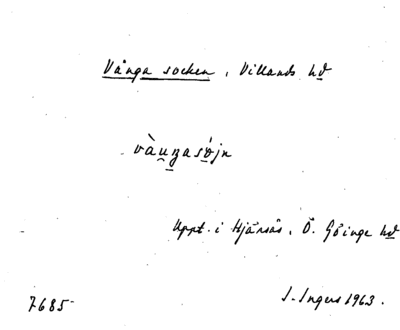 Vånga socken, Villands hd
vàu̯ŋasójn
Uppt. i Hjärsås, Ö. Göinge hd
7685
I. Ingers 1963.